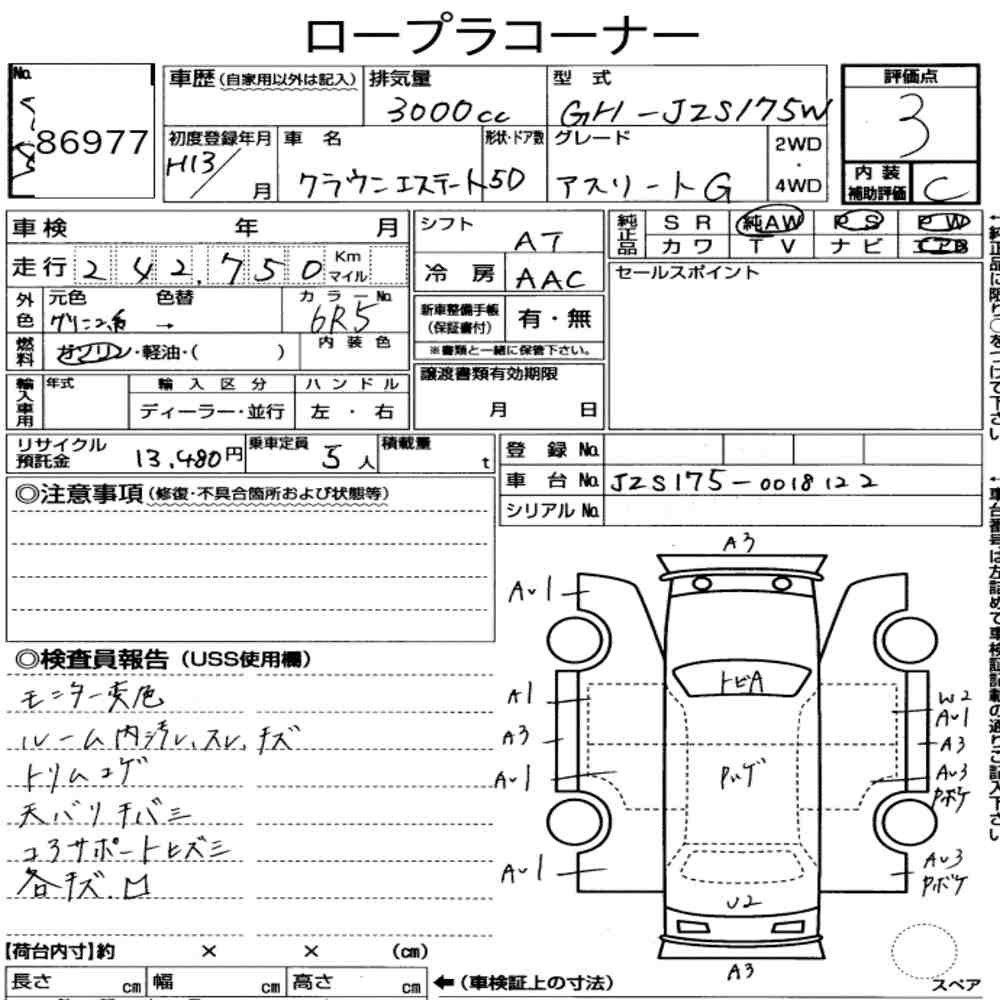 ロープラコーナー
No.
86977
車歴(自家用以外は記入)
排気量
3000cc
型 式
GH-JZS175W
評価点
3
初度登録年月
H13/
月
車 名
クラウンエステート
形状・ドア数
5D
グレード
アスリートG
2WD
・
4WD
内 装
補助評価
C
車検 年 月
走行 242,750 Km マイル
シフト
AT
冷 房
AAC
純正品
SR 純AW PS PW
カワ TV ナビ エアB
セールスポイント
外色
元色 色替
グリーン系 →
カラーNo.
6R5
新車整備手帳
(保証書付)
有・無
※書類と一緒に保管下さい。
燃料
ガソリン・軽油・( )
内装色
輸入車用
年式
輸入区分
ハンドル
ディーラー・並行
左 ・ 右
譲渡書類有効期限
月 日
リサイクル
預託金
13,480円
乗車定員
5人
積載量
t
登 録 No.
車 台 No. JZS175-0018122
シリアル No.
◎注意事項(修復・不具合箇所および状態等)
◎検査員報告(USS使用欄)
モニター変色
ルーム内汚レ、スレ、キズ
トリムコゲ
天バリキバミ
コアサポートヒズミ
各キズ、凹
A3
Aウ1
A1
A3
Aウ1
Aウ1
トビA
Pハゲ
U2
A3
W2
Aウ1
A3
Aウ3
Pボケ
Aウ3
Pボケ
スペア
【荷台内寸】約 × × (cm)
長さ cm 幅 cm 高さ cm
←(車検証上の寸法)
←純正品に限り○をつけて下さい。
←車台番号は左詰めで車検証記載の通りご記入下さい。